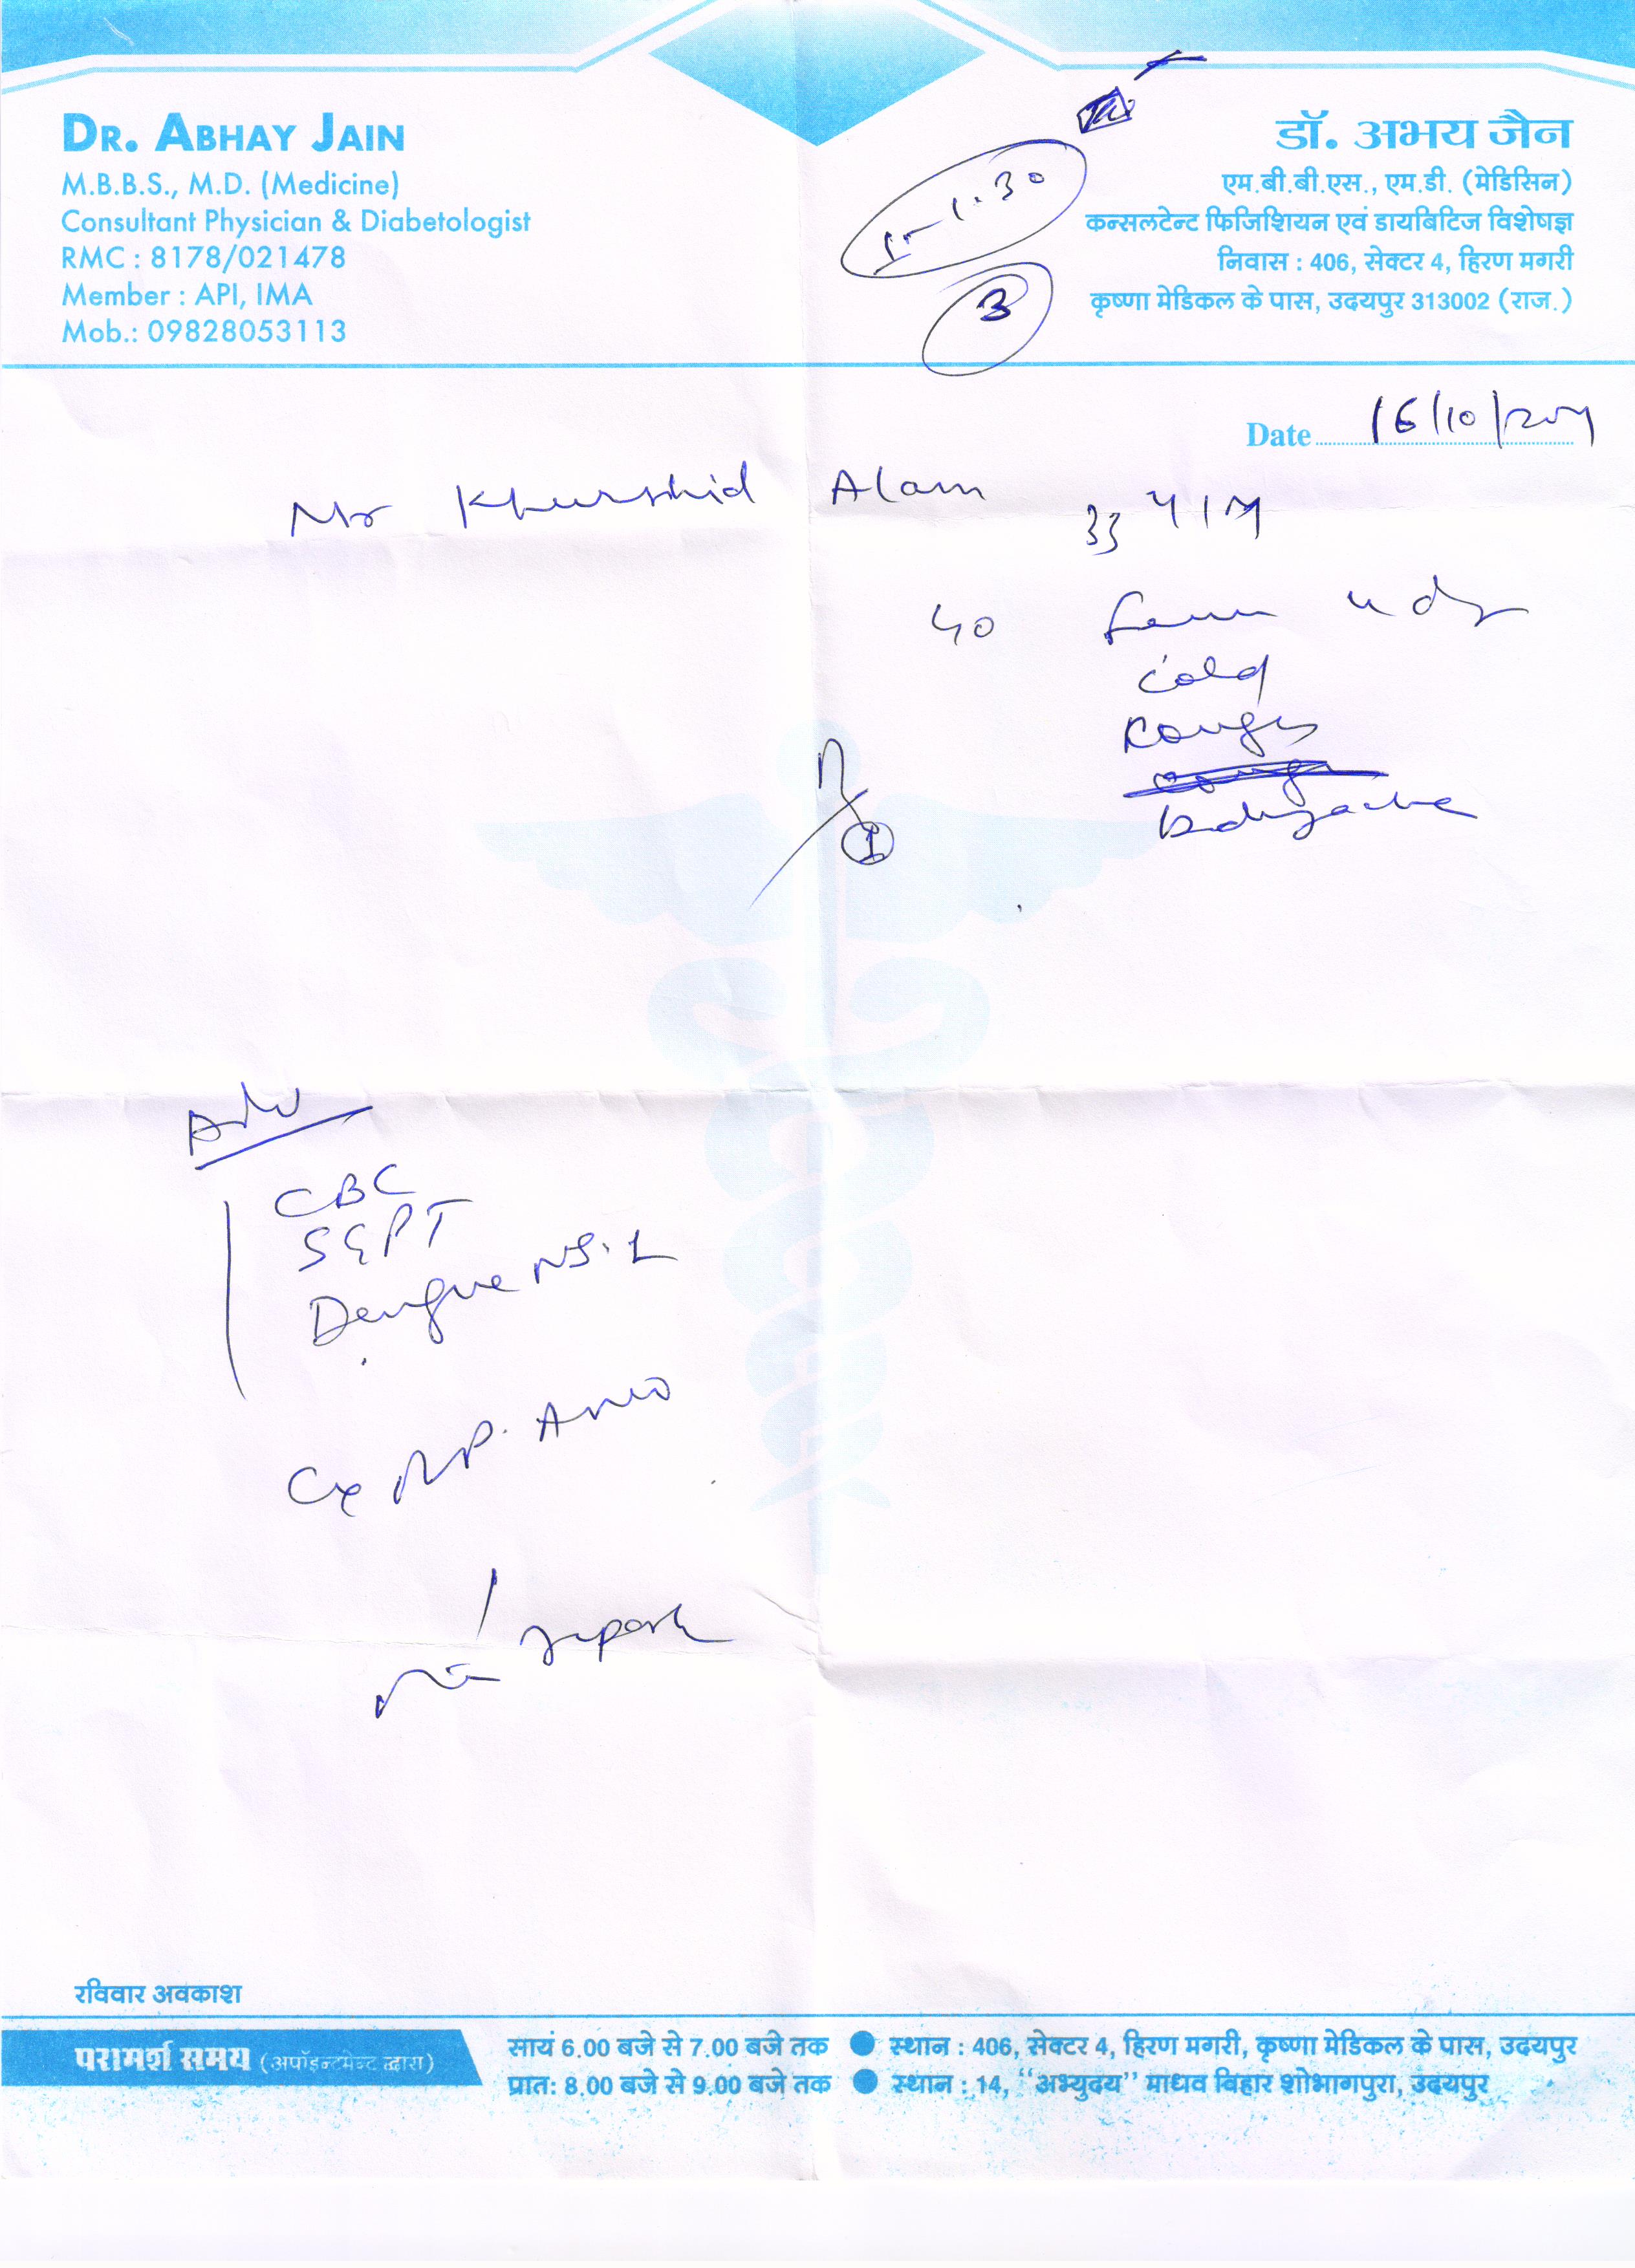 DR. ABHAY JAIN
M.B.B.S., M.D. (Medicine)
Consultant Physician & Diabetologist
RMC : 8178/021478
Member : API, IMA
Mob.: 09828053113
1-1.30
3
डॉ. अभय जैन
एम.बी.बी.एस., एम.डी. (मेडिसिन)
कन्सलटेन्ट फिजिशियन एवं डायबिटिज विशेषज्ञ
निवास : 406, सेक्टर 4, हिरण मगरी
कृष्णा मेडिकल के पास, उदयपुर 313002 (राज.)
Date 16/10/
Mr Khurshid Alam 33 Y/M
cold
bodyache
Adv
CBC
SGPT
Dengue NS.1
report
रविवार अवकाश
परामर्श समय (अपॉइन्टमेन्ट द्वारा)
सायं 6.00 बजे से 7.00 बजे तक ● स्थान : 406, सेक्टर 4, हिरण मगरी, कृष्णा मेडिकल के पास, उदयपुर
प्रात: 8.00 बजे से 9.00 बजे तक ● स्थान : 14, ‘‘अभ्युदय’’ माधव विहार शोभागपुरा, उदयपुर